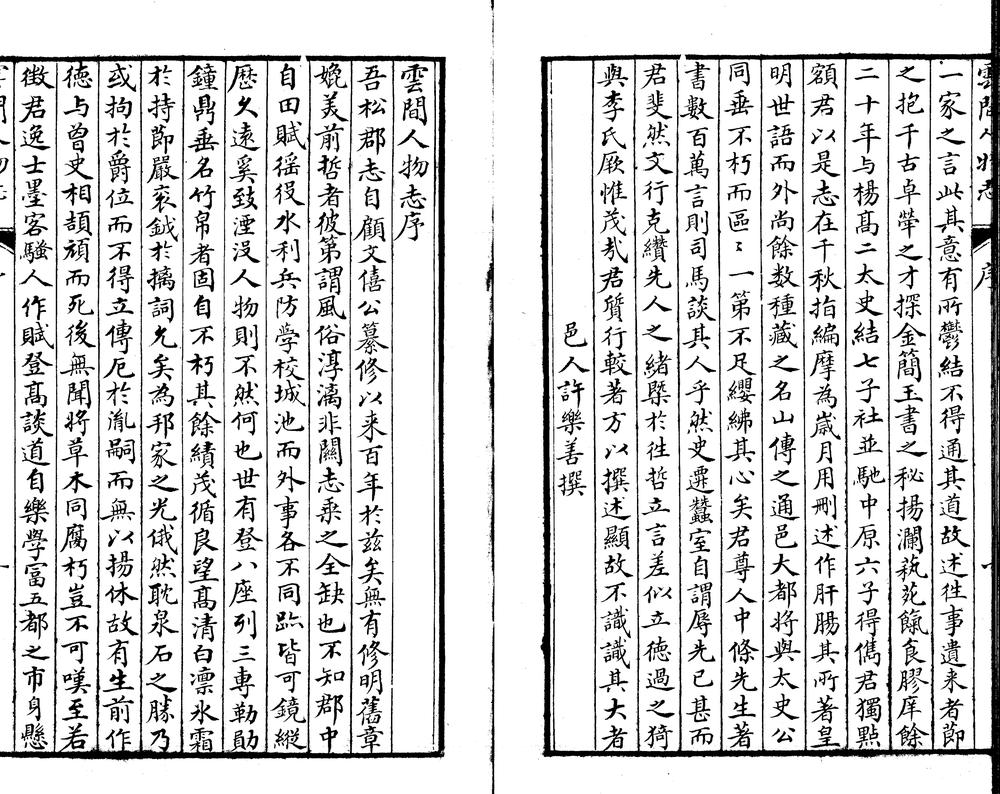 雲間人物志 序
一家之言此其意有所鬱結不得通其道故述往事遺来者節
之抱千古卓犖之才探金簡玉書之秘揚瀾蓺苑餼食膠庠餘
二十年与楊髙二太史結七子社並馳中原六子得儁君獨㸃
額君以是志在千秋指編摩為嵗月用刪述作肝膓其所著皇
明世語而外尚餘数種藏之名山傳之通邑大都将與太史公
同垂不朽而區〻一第不足纓紼其心矣君尊人中條先生著
書數百萬言則司馬談其人乎然史遷蠶室自謂辱先已甚而
君斐然文行克纘先人之緒槩於徃哲立言差似立徳過之猗
與李氏厥惟茂㢤君質行較著方以撰述顯故不識識其大者
邑人許樂善撰
雲間人物志序
吾松郡志自顧文僖公纂修以来百年於兹矣無有修明舊章
娩美前哲者彼第謂風俗淳漓非關志乘之全缺也不知郡中
自田賦徭役水利兵防学校城池而外事各不同跡皆可鏡縱
歴久遠奚致湮没人物則不然何也世有登八座列三専勒勛
鐘鼎垂名竹帛者固自不朽其餘績茂循良望髙清白凛氷霜
於持節嚴衮鉞於摛詞允矣為邦家之光俄然耽泉石之勝乃
或拘於爵位而不得立傳厄於胤嗣而無以揚休故有生前作
徳与曾史相頡頏而死後無聞将草木同腐朽豈不可嘆至若
徴君逸士墨客騷人作賦登髙談道自樂学富五都之市身懸